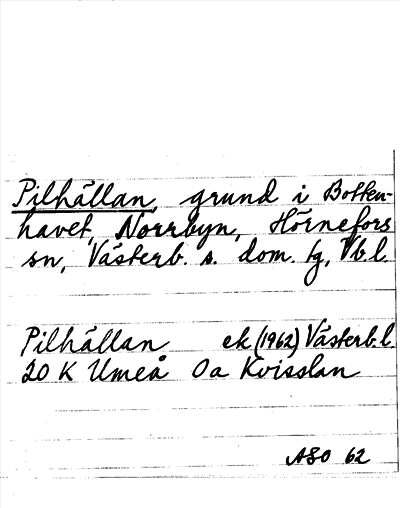 Pilhällan, grund i Botten-
havet, Norrbyn, Hörnefors
sn, Västerb. s. dom. tg, Vb.l.
Pilhällan ek (1962) Västerb.l.
20 K Umeå 0a Kvisslan
ASO 62